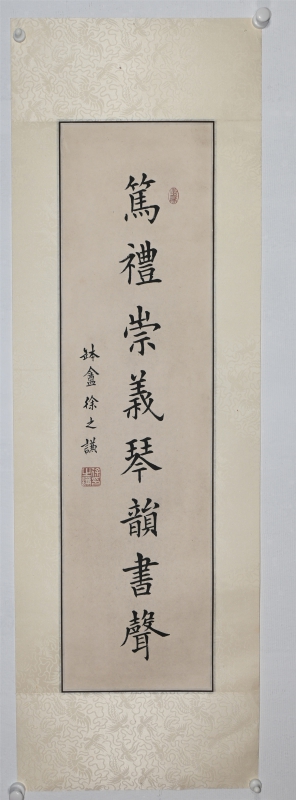 篤禮崇義琴韻書聲
缽盦徐之謙